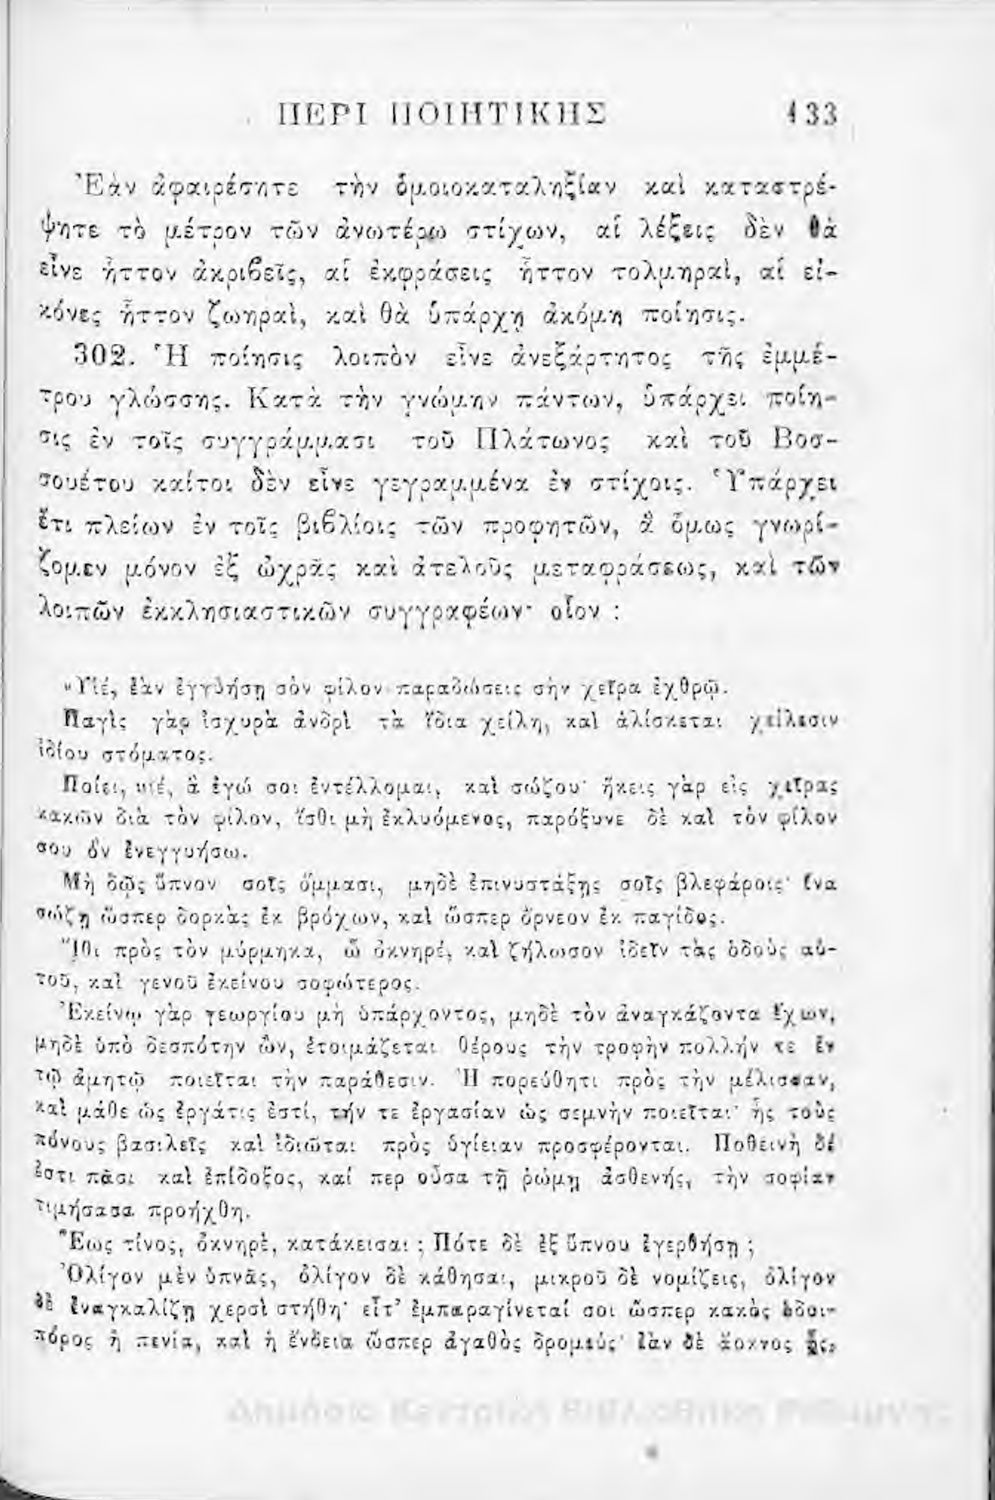 ΠΕΡΙ ΠΟΙΗΤΙΚΗΣ 433
Ἐὰν ἀφαιρέσητε τὴν ὁμοιοκαταληξίαν καὶ καταστρέ-
ψητε τὸ μέτρον τῶν ἀνωτέρω στίχων, αἱ λέξεις δὲν θὰ
εἶνε ἧττον ἀκριβεῖς, αἱ ἐκφράσεις ἧττον τολμηραὶ, αἱ εἰ-
κόνες ἧττον ζωηραὶ, καὶ θὰ ὑπάρχῃ ἀκόμη ποίησις.
302. Ἡ ποίησις λοιπὸν εἶνε ἀνεξάρτητος τῆς ἐμμέ-
τρου γλώσσης. Κατὰ τὴν γνώμην πάντων, ὑπάρχει ποίη-
σις ἐν τοῖς συγγράμμασι τοῦ Πλάτωνος καὶ τοῦ Βοσ-
σουέτου καίτοι δὲν εἶνε γεγραμμένα ἐν στίχοις. Ὑπάρχει
ἔτι πλείων ἐν τοῖς βιβλίοις τῶν προφητῶν, ἃ ὅμως γνωρί-
ζομεν μόνον ἐξ ὠχρᾶς καὶ ἀτελοῦς μεταφράσεως, καὶ τῶν
λοιπῶν ἐκκλησιαστικῶν συγγραφέων· οἷον :
«Υἱέ, ἐὰν ἐγγυήσῃ σὸν φίλον παραδώσεις σὴν χεῖρα ἐχθρῷ.
Παγὶς γὰρ ἰσχυρὰ ἀνδρὶ τὰ ἴδια χείλη, καὶ ἁλίσκεται χείλεσιν
ἰδίου στόματος.
Ποίει, υἱέ, ἃ ἐγώ σοι ἐντέλλομαι, καὶ σώζου· ἥκεις γὰρ εἰς χεῖρας
κακῶν διὰ τὸν φίλον, ἴσθι μὴ ἐκλυόμενος, παρόξυνε δὲ καὶ τὸν φίλον
σου ὃν ἐνεγγυήσω.
Μὴ δῷς ὕπνον σοῖς ὄμμασι, μηδὲ ἐπινυστάξῃς σοῖς βλεφάροις· ἵνα
σώζῃ ὥσπερ δορκὰς ἐκ βρόχων, καὶ ὥσπερ ὄρνεον ἐκ παγίδος.
Ἴθι πρὸς τὸν μύρμηκα, ὦ ὀκνηρέ, καὶ ζήλωσον ἰδεῖν τὰς ὁδοὺς αὐ-
τοῦ, καὶ γενοῦ ἐκείνου σοφώτερος.
Ἐκείνῳ γὰρ γεωργίου μὴ ὑπάρχοντος, μηδὲ τὸν ἀναγκάζοντα ἔχων,
μηδὲ ὑπὸ δεσπότην ὢν, ἑτοιμάζεται θέρους τὴν τροφὴν πολλήν τε ἐν
τῷ ἀμητῷ ποιεῖται τὴν παράθεσιν. Ἢ πορεύθητι πρὸς τὴν μέλισσαν,
καὶ μάθε ὡς ἐργάτις ἐστί, τήν τε ἐργασίαν ὡς σεμνὴν ποιεῖται· ἧς τοὺς
πόνους βασιλεῖς καὶ ἰδιῶται πρὸς ὑγίειαν προσφέρονται. Ποθεινὴ δέ
ἐστι πᾶσι καὶ ἐπίδοξος, καί περ οὖσα τῇ ῥώμῃ ἀσθενής, τὴν σοφίαν
τιμήσασα προήχθη.
Ἕως τίνος, ὀκνηρὲ, κατάκεισαι ; Πότε δὲ ἐξ ὕπνου ἐγερθήσῃ ;
Ὀλίγον μὲν ὑπνᾷς, ὀλίγον δὲ κάθησαι, μικροῦ δὲ νομίζεις, ὀλίγον
δὲ ἐναγκαλίζῃ χερσὶ στήθη· εἶτ’ ἐμπαραγίνεταί σοι ὥσπερ κακὸς ὁδοι-
πόρος ἡ πενία, καὶ ἡ ἔνδεια ὥσπερ ἀγαθὸς δρομεύς· ἐὰν δὲ ἄοκνος ᾖς,
Δημόσια Κεντρική Βιβλιοθήκη